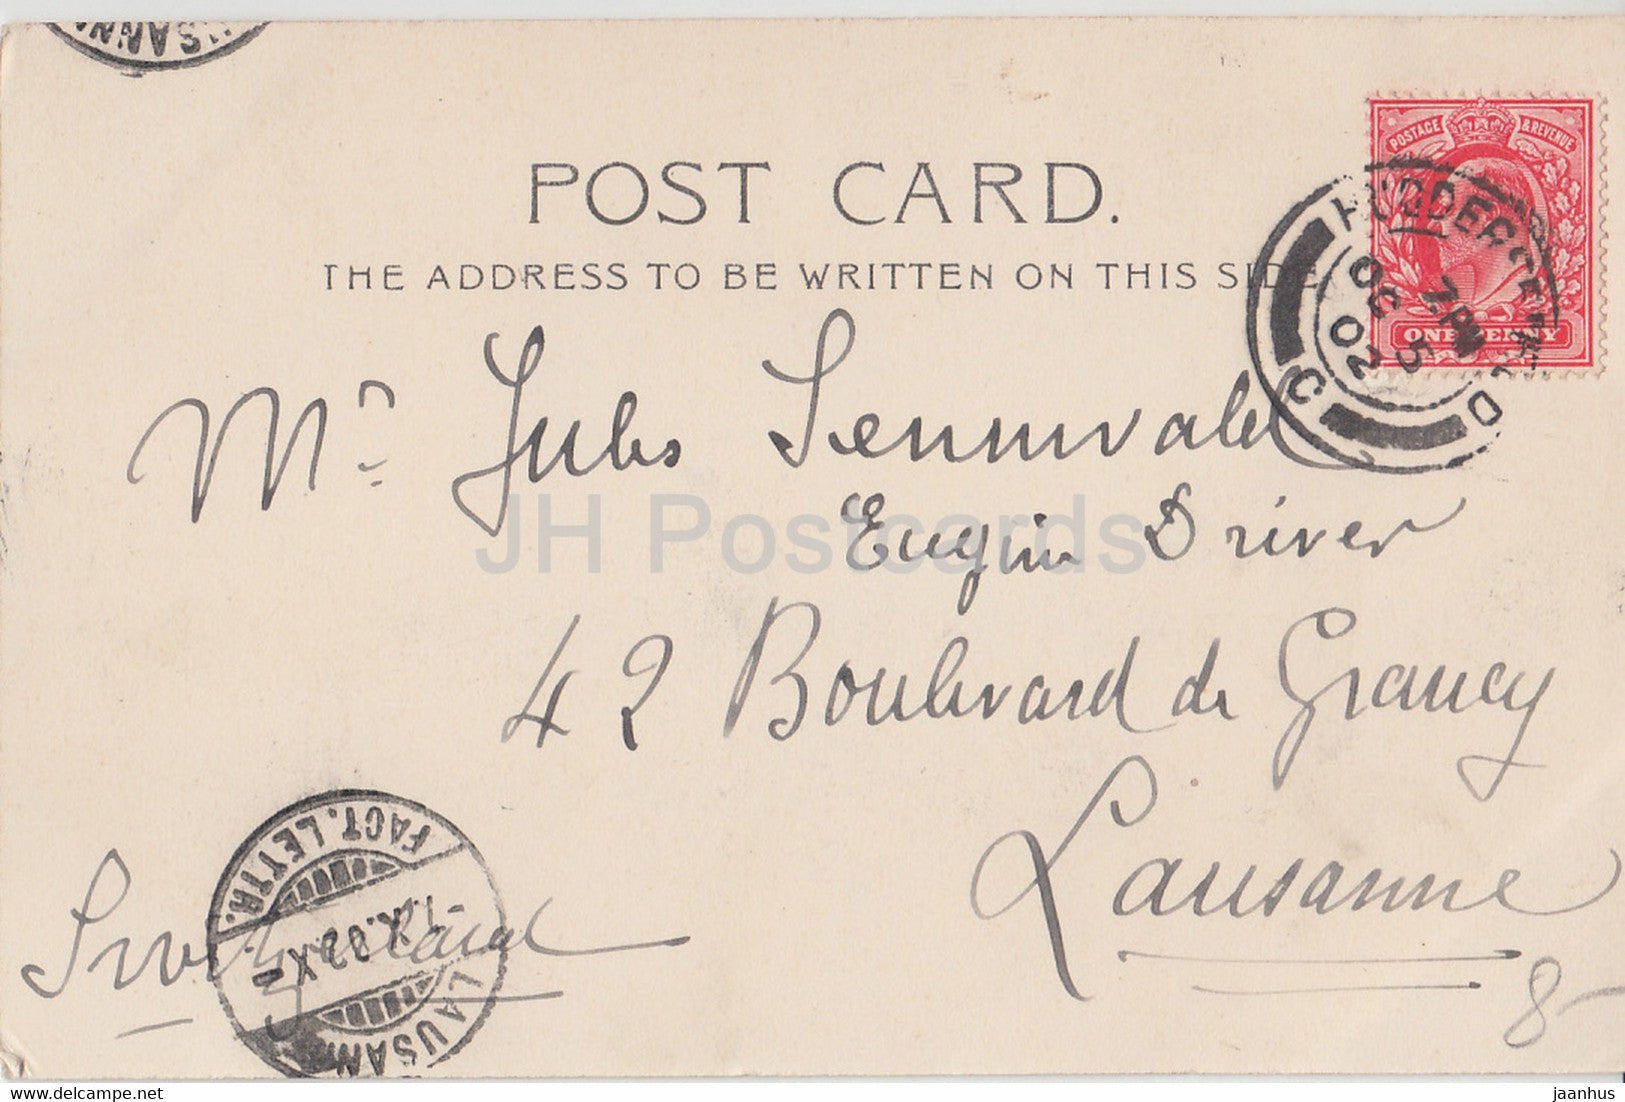 POST CARD.
THE ADDRESS TO BE WRITTEN ON THIS SIDE
POSTAGE & REVENUE
ONE PENNY
HUDDERSFIELD
7 PM
OC 5
02
C
Mr Jules Sennwald
Engin Driver
42 Boulevard de Grancy
Lausanne
Switzerland
FACT. LETTR.
LAUSAN
8-
JH Postcards
jaanhus